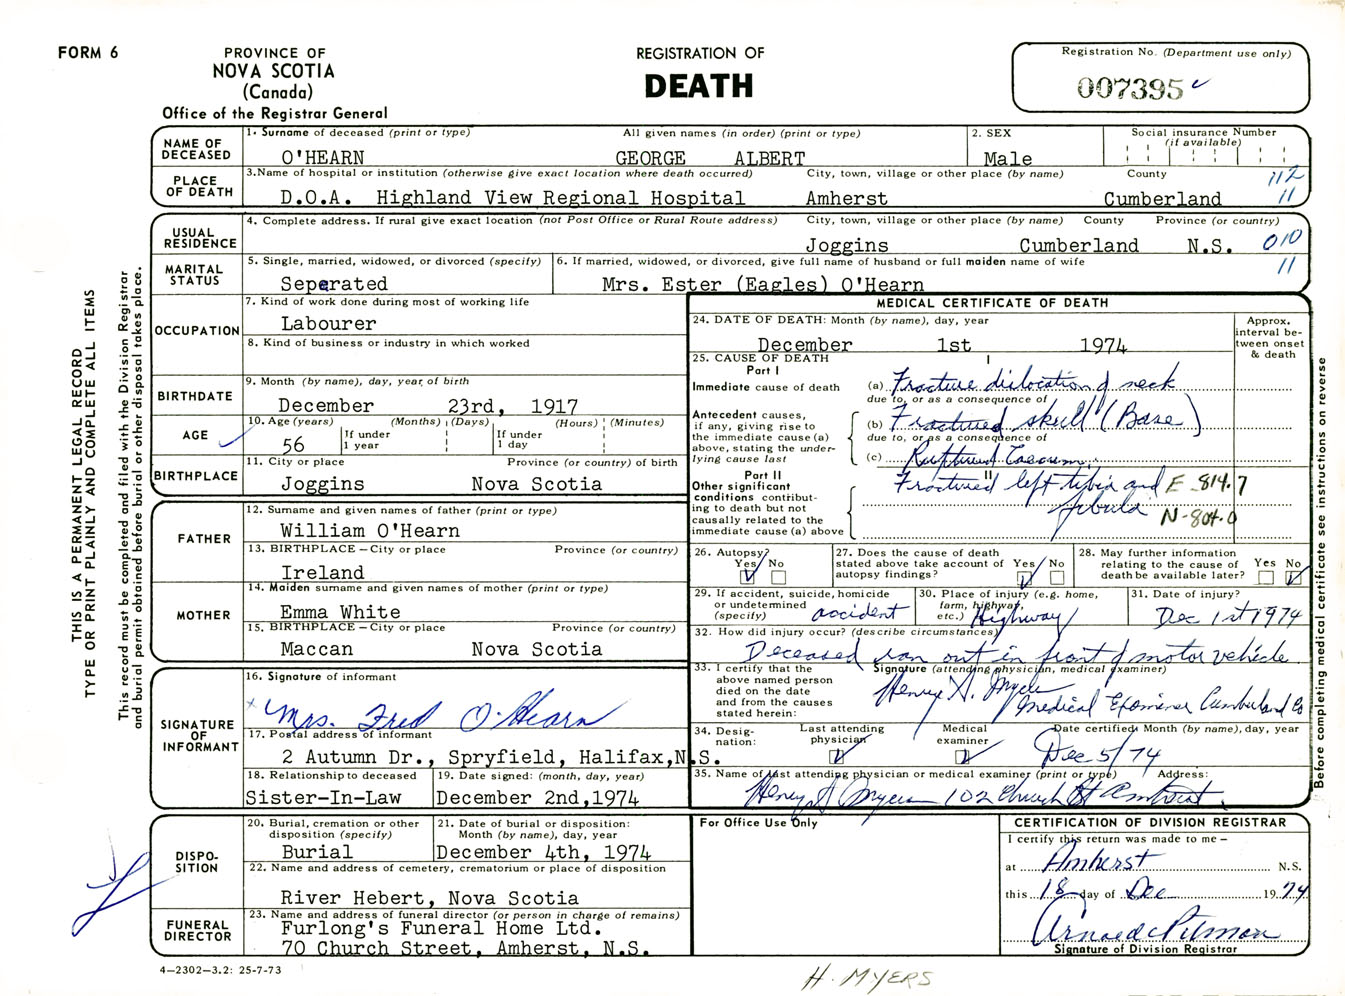 FORM 6
PROVINCE OF
NOVA SCOTIA
(Canada)
Office of the Registrar General
REGISTRATION OF
DEATH
Registration No. (Department use only)
007395
NAME OF DECEASED
1. Surname of deceased (print or type) All given names (in order) (print or type) 2. SEX Social insurance Number (if available)
O'HEARN GEORGE ALBERT Male
PLACE OF DEATH
3. Name of hospital or institution (otherwise give exact location where death occurred) City, town, village or other place (by name) County 112
D.O.A. Highland View Regional Hospital Amherst Cumberland 11
USUAL RESIDENCE
4. Complete address. If rural give exact location (not Post Office or Rural Route address) City, town, village or other place (by name) County Province (or country)
Joggins Cumberland N.S. 010
11
MARITAL STATUS
5. Single, married, widowed, or divorced (specify) 6. If married, widowed, or divorced, give full name of husband or full maiden name of wife
Seperated Mrs. Ester (Eagles) O'Hearn
OCCUPATION
7. Kind of work done during most of working life
Labourer
8. Kind of business or industry in which worked
BIRTHDATE
9. Month (by name), day, year of birth
December 23rd, 1917
AGE
10. Age (years) (Months) (Days) (Hours) (Minutes)
56 If under 1 year If under 1 day
BIRTHPLACE
11. City or place Province (or country) of birth
Joggins Nova Scotia
FATHER
12. Surname and given names of father (print or type)
William O'Hearn
13. BIRTHPLACE – City or place Province (or country)
Ireland
MOTHER
14. Maiden surname and given names of mother (print or type)
Emma White
15. BIRTHPLACE – City or place Province (or country)
Maccan Nova Scotia
SIGNATURE OF INFORMANT
16. Signature of informant
x Mrs. Fred O'Hearn
17. Postal address of informant
2 Autumn Dr., Spryfield, Halifax, N.S.
18. Relationship to deceased 19. Date signed: (month, day, year)
Sister-In-Law December 2nd, 1974
DISPOSITION
20. Burial, cremation or other disposition (specify) 21. Date of burial or disposition: Month (by name), day, year
Burial December 4th, 1974
22. Name and address of cemetery, crematorium or place of disposition
River Hebert, Nova Scotia
FUNERAL DIRECTOR
23. Name and address of funeral director (or person in charge of remains)
Furlong's Funeral Home Ltd.
70 Church Street, Amherst, N.S.
4–2302–3.2: 25-7-73
MEDICAL CERTIFICATE OF DEATH
24. DATE OF DEATH: Month (by name), day, year
December 1st 1974
Approx. interval between onset & death
25. CAUSE OF DEATH
Part I
I
Immediate cause of death (a) Fracture dislocation of neck
due to, or as a consequence of
Antecedent causes, if any, giving rise to the immediate cause (a) above, stating the underlying cause last
(b) Fractured skull (Base)
due to, or as a consequence of
(c) Ruptured Caecum
Part II
II
Other significant conditions contributing to death but not causally related to the immediate cause (a) above
Fractured left tibia and E-814.7
fibula N-804.0
26. Autopsy? Yes No
27. Does the cause of death stated above take account of autopsy findings? Yes No
28. May further information relating to the cause of death be available later? Yes No
29. If accident, suicide, homicide or undetermined (specify) accident
30. Place of injury (e.g. home, farm, highway, etc.) Highway
31. Date of injury?
Dec 1st 1974
32. How did injury occur? (describe circumstances)
Deceased ran out in front of motor vehicle
33. I certify that the above named person died on the date and from the causes stated herein:
Signature (attending physician, medical examiner)
Henry S. Myers
Medical Examiner Cumberland Co
34. Designation: Last attending physician Medical examiner Date certified: Month (by name), day, year
Dec 5/74
35. Name of last attending physician or medical examiner (print or type) Address:
Henry S Myers 102 Church St Amherst
For Office Use Only
CERTIFICATION OF DIVISION REGISTRAR
I certify this return was made to me –
at Amherst N.S.
this 18 day of Dec 1974
Signature of Division Registrar
H. MYERS
THIS IS A PERMANENT LEGAL RECORD
TYPE OR PRINT PLAINLY AND COMPLETE ALL ITEMS
This record must be completed and filed with the Division Registrar
and burial permit obtained before burial or other disposal takes place.
Before completing medical certificate see instructions on reverse